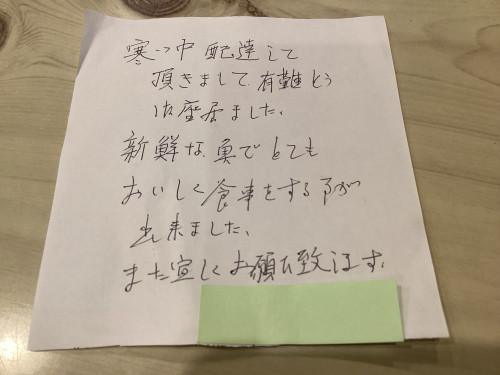 寒い中配達して
頂きまして有難とう
御座居ました、
新鮮な魚でとても
おいしく食事をする事が
出来ました、
また宜しくお願い致します、